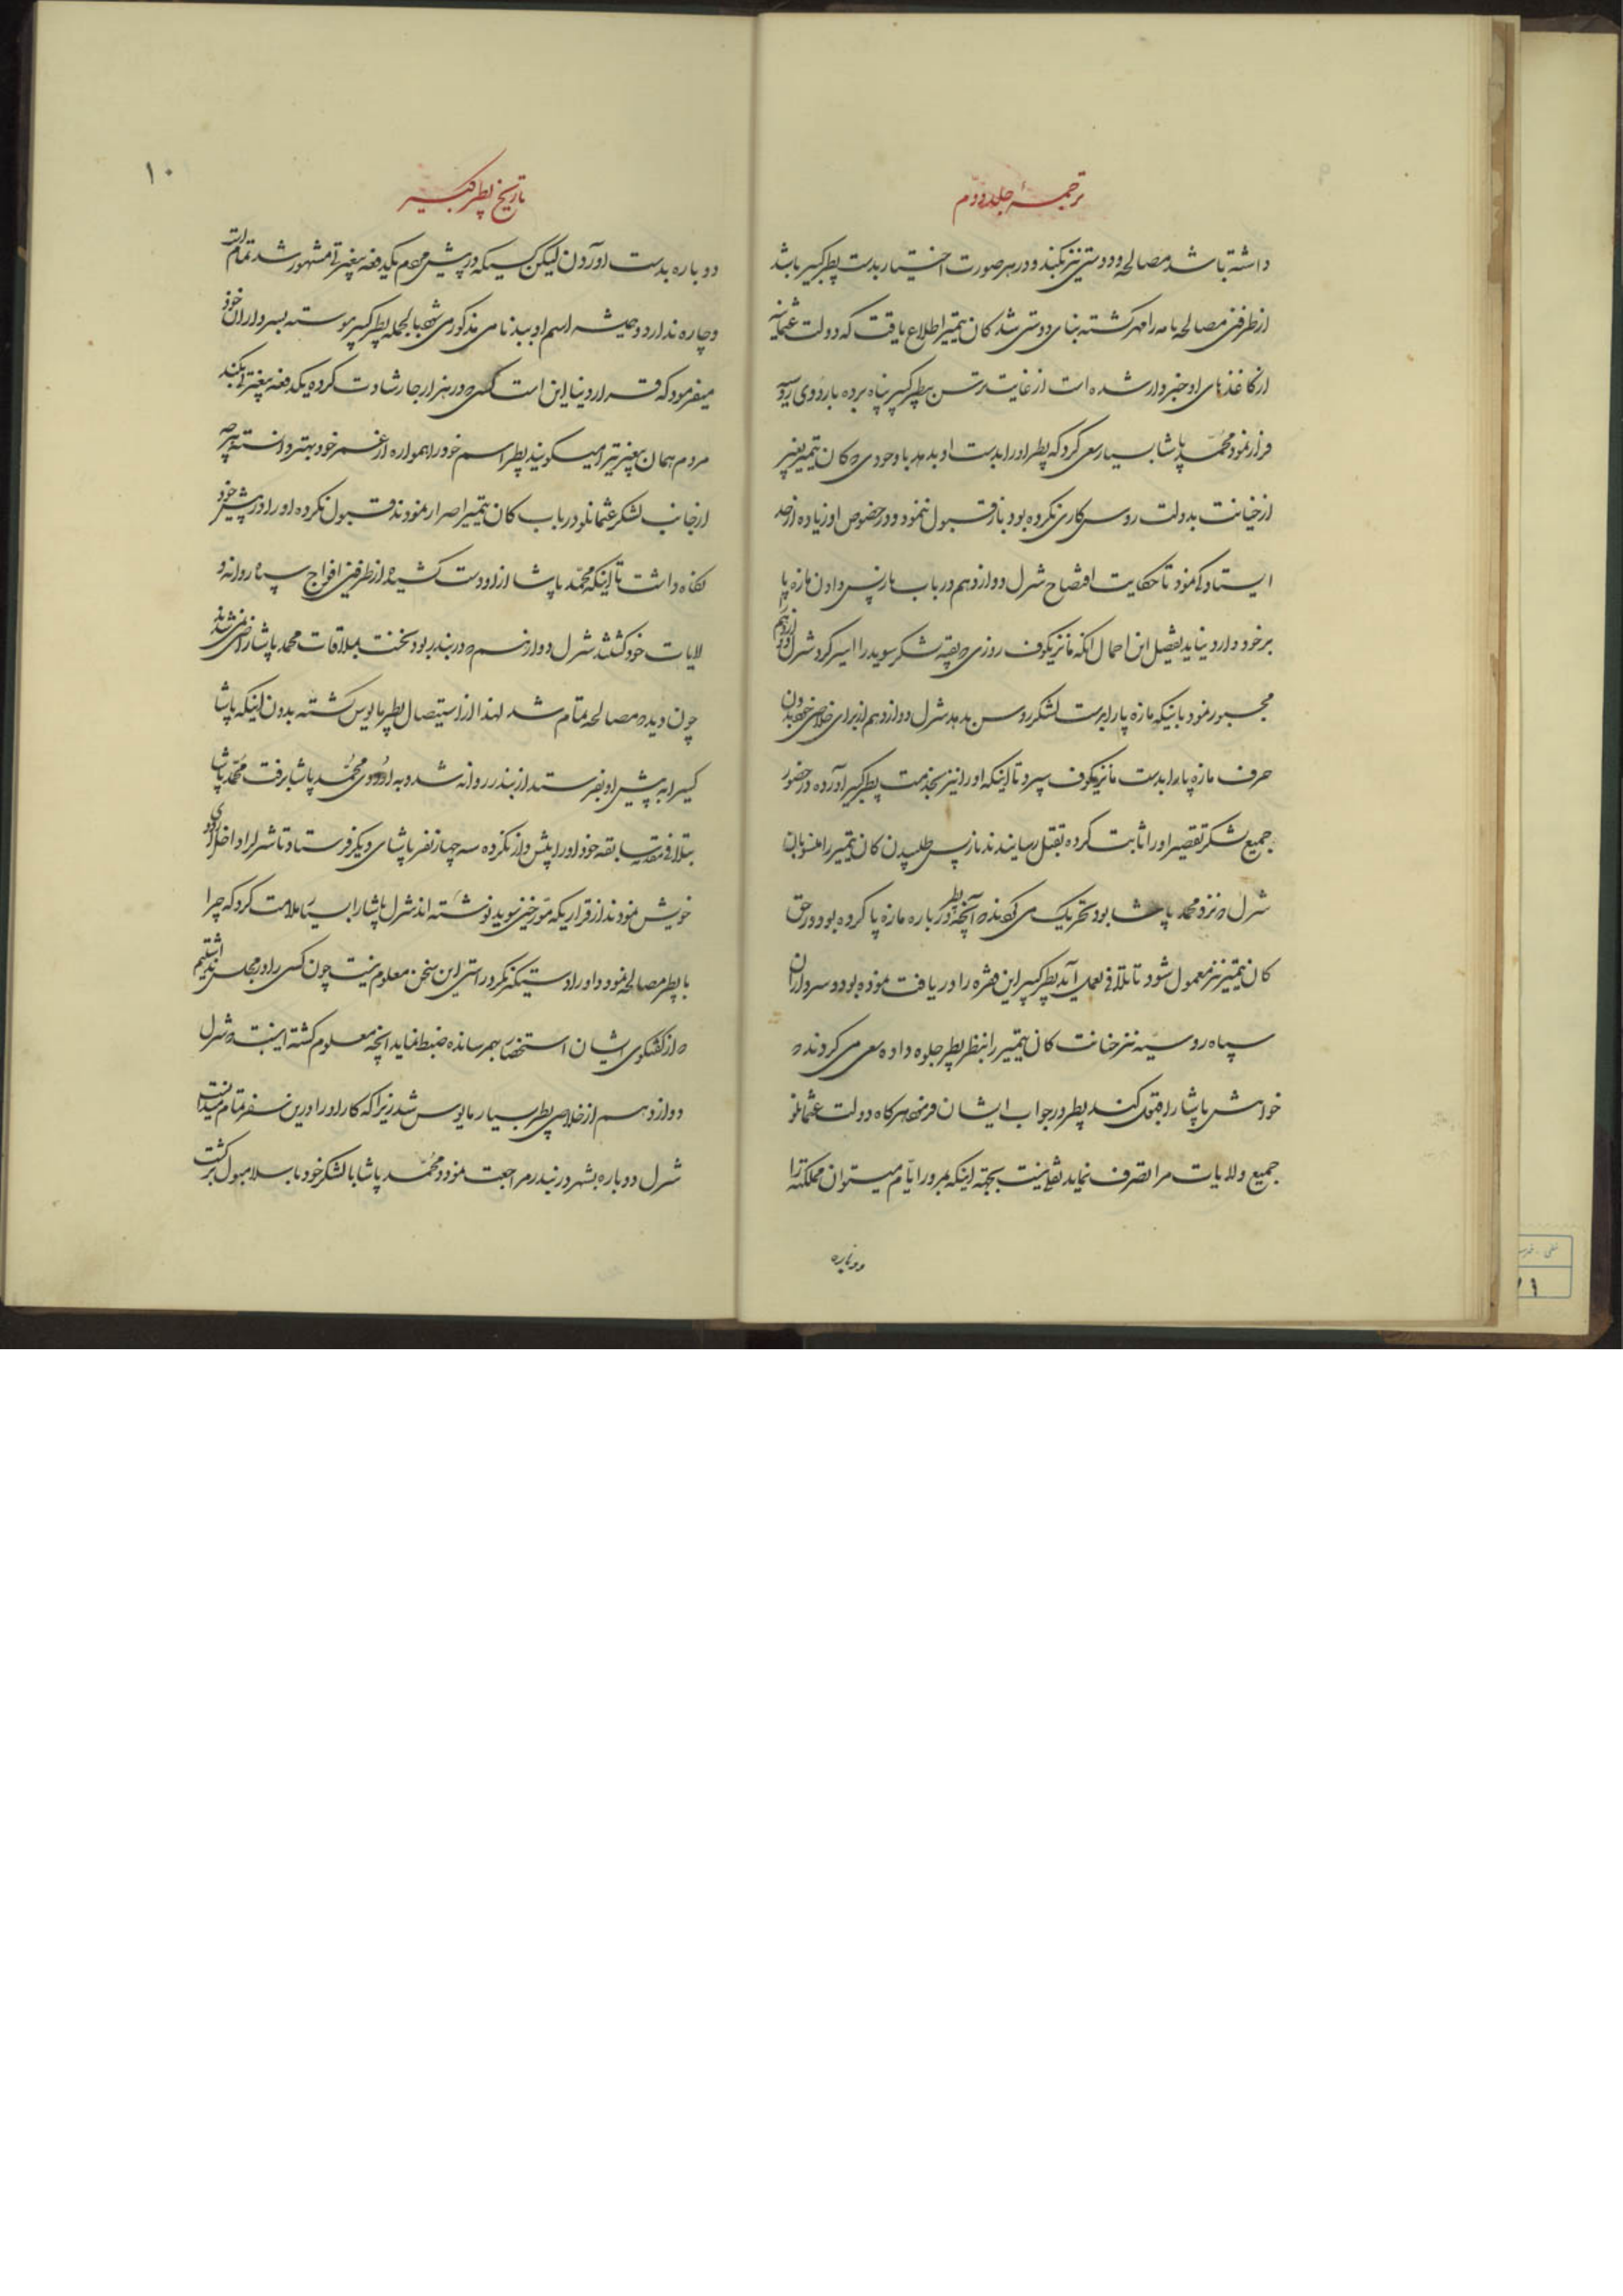 ترجمهٔ جلد دوم
داشته باشد مصالحه و دوستی نیز بکند و در هر صورت اختیار بدست پطر کبیر باشد
از طرفین مصالحه نامه را مهر کشته بنای دوستی شد کان تیمیر اطلاع یافت که دولت عثمانیه
از کاغذهای او خبردار شده است از غایت ترس بپطر کبیر پناه برده باردوی روسیه
فرار نمود محمد پاشا بسیار سعی کرد که پطر او را بدست او بدهد با وجودی که کان تیمیر بغیر
از خیانت بدولت روس کاری نکرده بود باز قبول ننمود و در خصوص او زیاده از حد
ایستادکی نمود تا حکایت افتضاح شرل دوازدهم در باب باز پس دادن مازه پا
بر خود وارد نیاید تفصیل این احمال آنکه مانزیکوف روزی که بقیه لشکر سوید را اسیر کرد شرل دوازدهم را
مجبور نمود باینکه مازه پا را بدست لشکر روس بدهد شرل دوازدهم از برای خلاصی خود بدون
حرف مازه پا را بدست مانزیکوف سپرد تا اینکه او را نیز بخدمت پطر کبیر آورده در حضور
جمیع لشکر تقصیر او را ثابت کرده بقتل رسانیدند باز پس طلبیدن کان تیمیر را
شرل که نزد محمد پاشا بود تحریک می کرد که آنچه پطر در باره مازه پا کرده بود در حق
کان تیمیر نیز معمول شود تا تلافی بعمل آید پطر کبیر این فقره را دریافت نموده بود و سرداران
سپاه روسیه نیز خیانت کان تیمیر را بنظر پطر جلوه داده سعی می کردند که
خواهش پاشا را قبول کند پطر در جواب ایشان فرمود هر کاه دولت عثمانلو
جمیع ولایات مرا تصرف نماید نقلی نیست بجهته اینکه بمرور ایام میتوان مملکت را
دوباره
۱۰
تاریخ پطر کبیر
دوباره بدست آوردن لیکن کسیکه در پیش مردم یکدفعه ببیغیرتی مشهور شد تمام است
و چاره ندارد و همیشه اسم او ببدنامی مذکور می شود بالجمله پطر کبیر پیوسته بسرداران خود
میفرمود که قرار دنیا این است کسی که در هزار جا رشادت کرده یکدفعه بیغیرتی بکند
مردم همان بیغیرتی را میکویند پطر اسم خود را همواره از عمر خود بهتر دانسته هر چه
از جانب لشکر عثمانلو در باب کان تیمیر اصرار نمودند قبول نکرده او را در پیش خود
نکاه داشت تا اینکه محمد پاشا از او دست کشیده از طرفین افواج سپاه روانه و
لایات خود کشتند شرل دوازدهم که در بندر بود نخست بملاقات محمد پاشا راضی نمی شد
چون دید که مصالحه تمام شد لهذا از استیصال پطر مایوس کشته بدون اینکه پاشا
کسی را به پیش او بفرستد از بندر روانه شد و به اردوی محمد پاشا برفت محمد پاشا
بتلافی سابقه خود او را پیشواز نکرده سه چهار نفر پاشای دیکر فرستاد تا شرل را داخل اردوی
خویش نمودند از قراریکه مورخین سوید نوشته اند شرل پاشا را بسیار ملامت کرد که چرا
با پطر مصالحه نمود و او را دستکیر نکرد راستی این سخن معلوم نیست چون کسی را در مجلس نداشتیم
که از کفتکوی ایشان استحضار بهم رسانده ضبط نماید آنچه معلوم کشته اینست که شرل
دوازدهم از خلاصی پطر بسیار مایوس شد زیرا که کار او را در این سفر تمام میدانست
شرل دوباره بشهر در بندر مراجعت نمود و محمد پاشا با لشکر خود باسلامبول برکشت